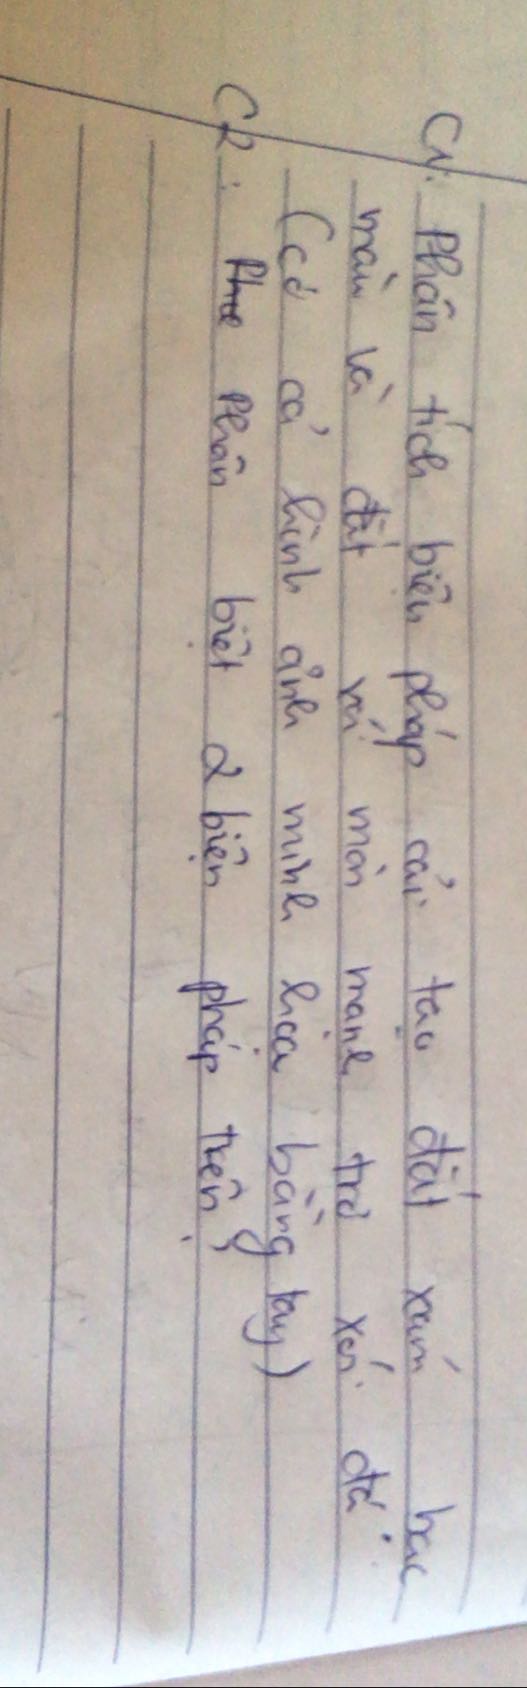 C1: Phân tích biện pháp cải tạo đất xám bạc
màu và đất xói mòn mạnh trơ xói đá.
(Có cả hình ảnh minh họa bằng tay)
C2: Phân biệt 2 biện pháp trên?